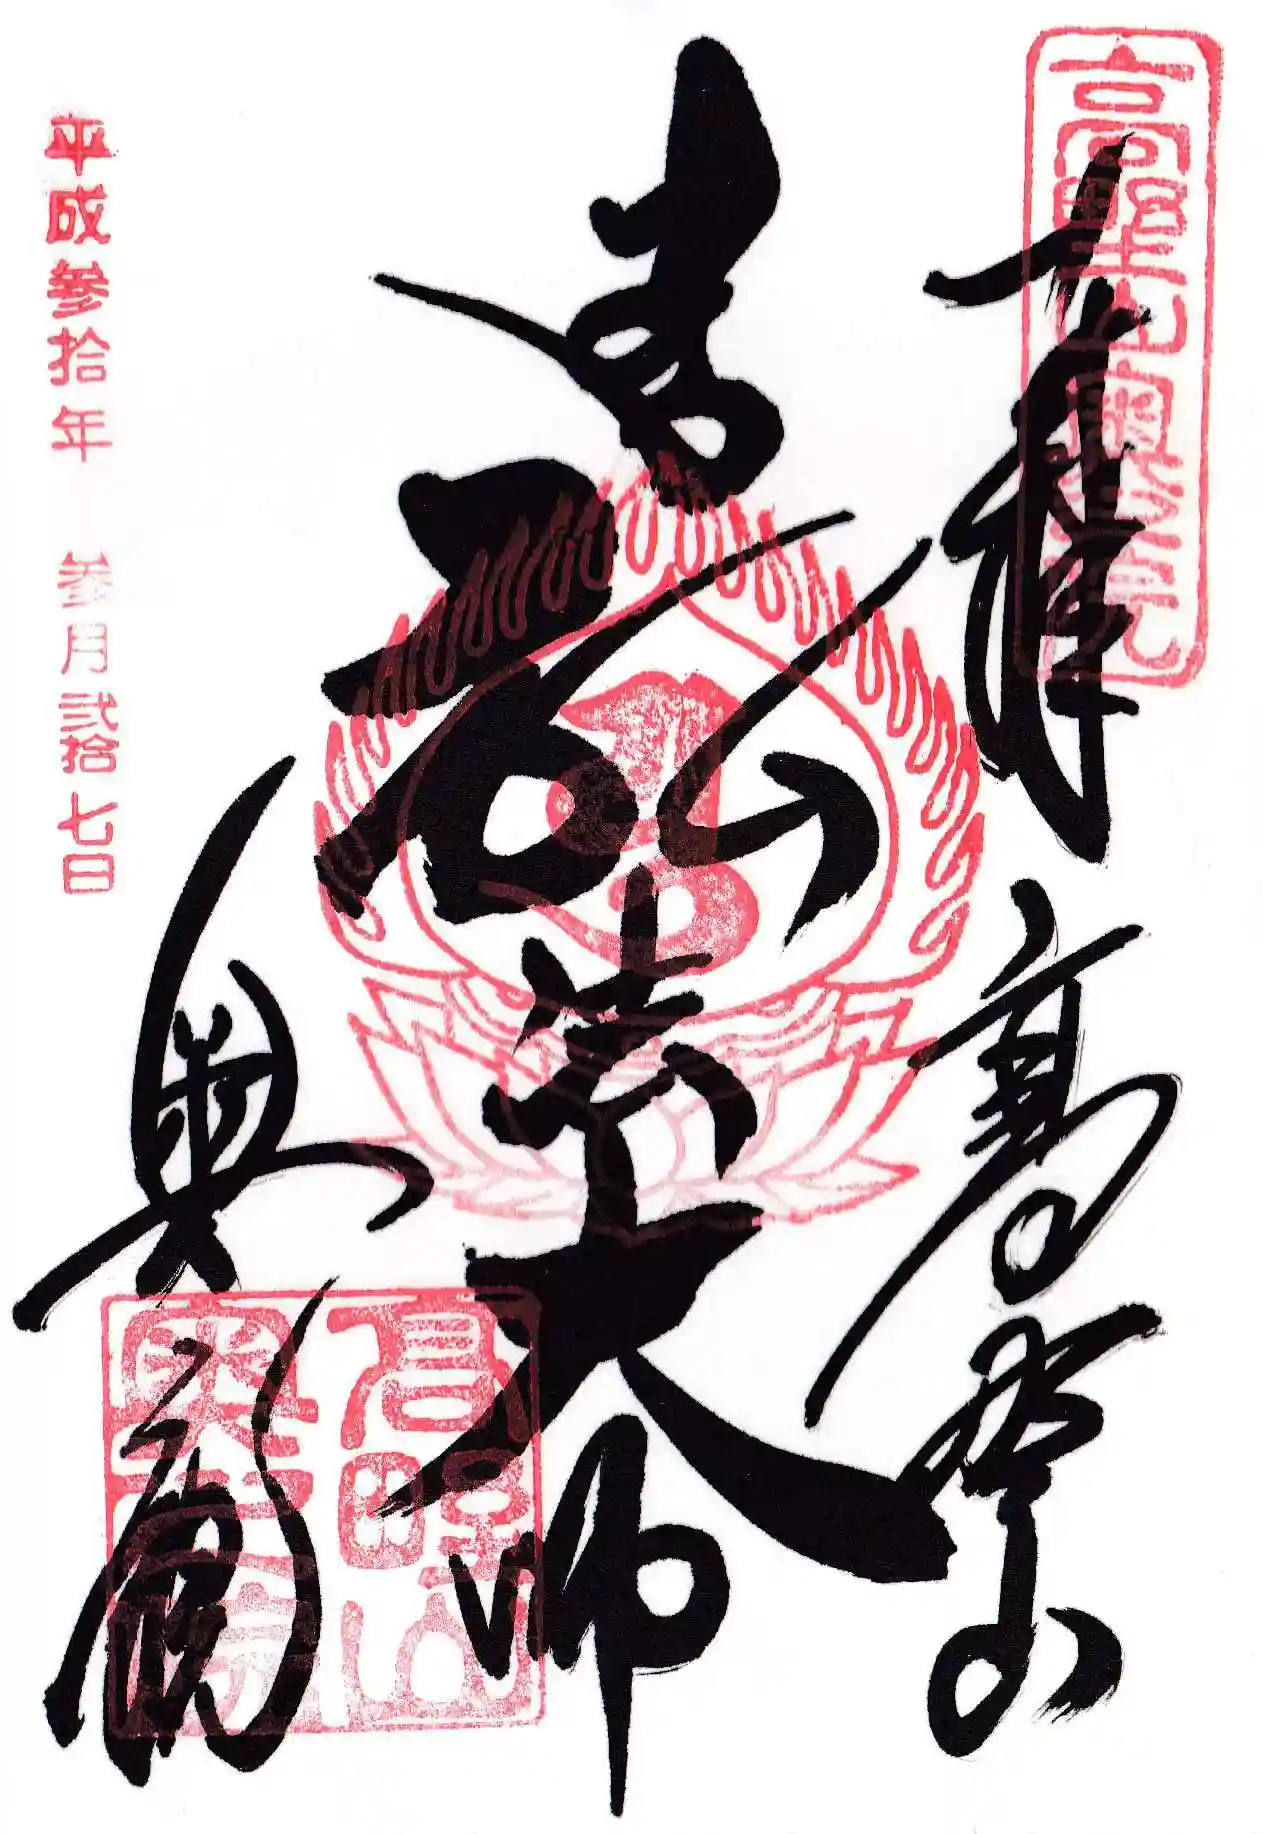 高野山奥之院
奉拝 高野山
弘法大師
奥
高野山
奥
平成参拾年 参月弐拾七日